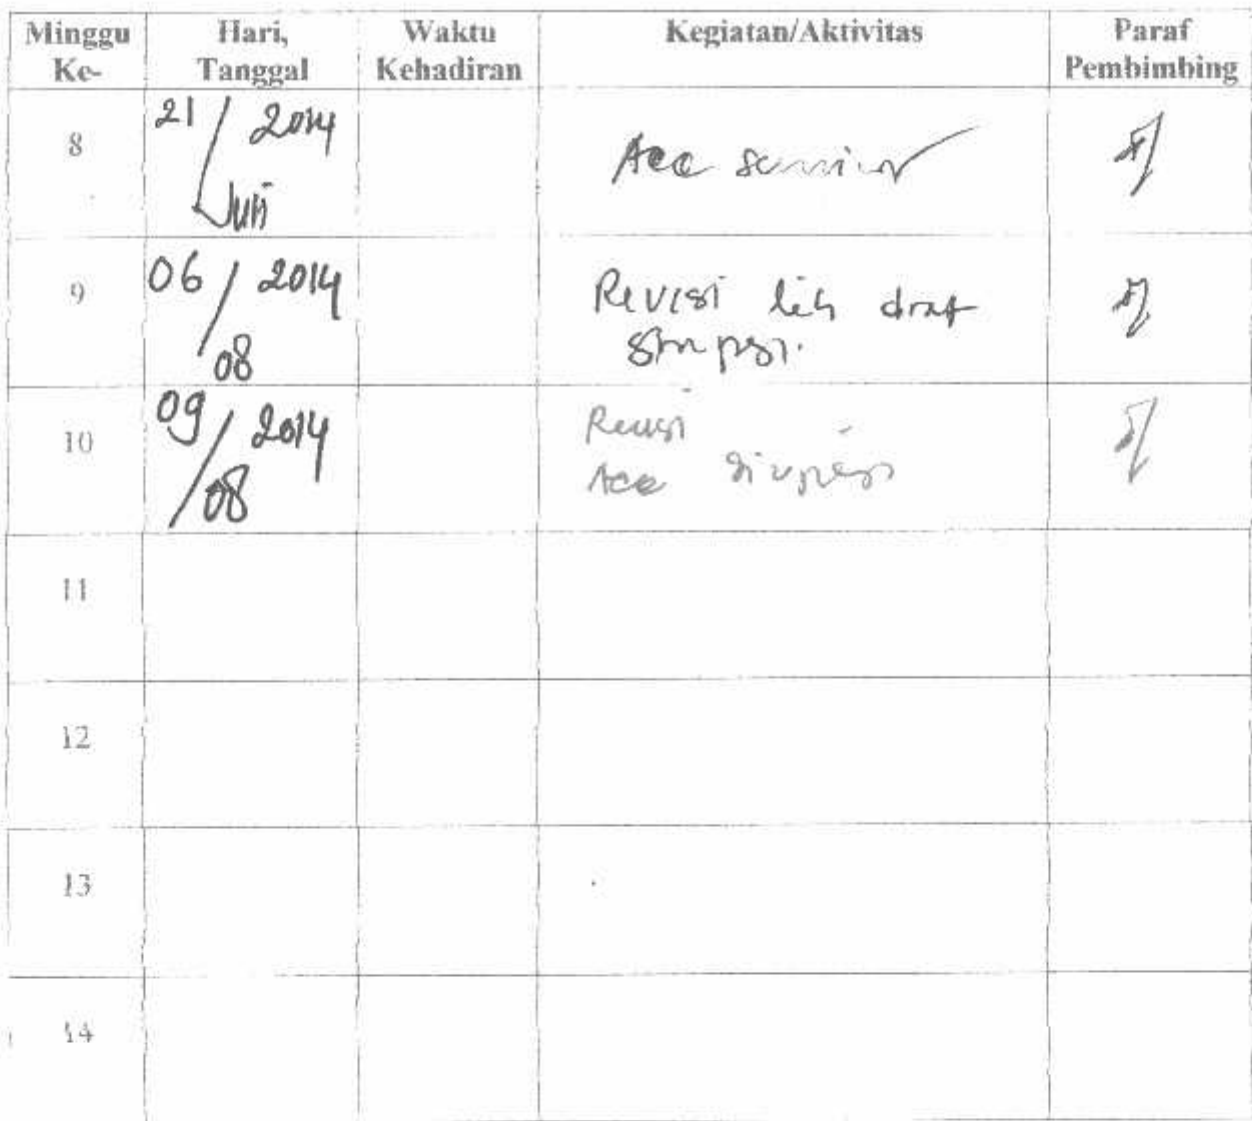 Minggu Ke- Hari, Tanggal Waktu Kehadiran Kegiatan/Aktivitas Paraf Pembimbing
8 21/Juli 2014 Acc seminar
9 06/08 2014 Revisi draf
skripsi.
10 09/08 2014 Revisi
Acc
11
12
13
14